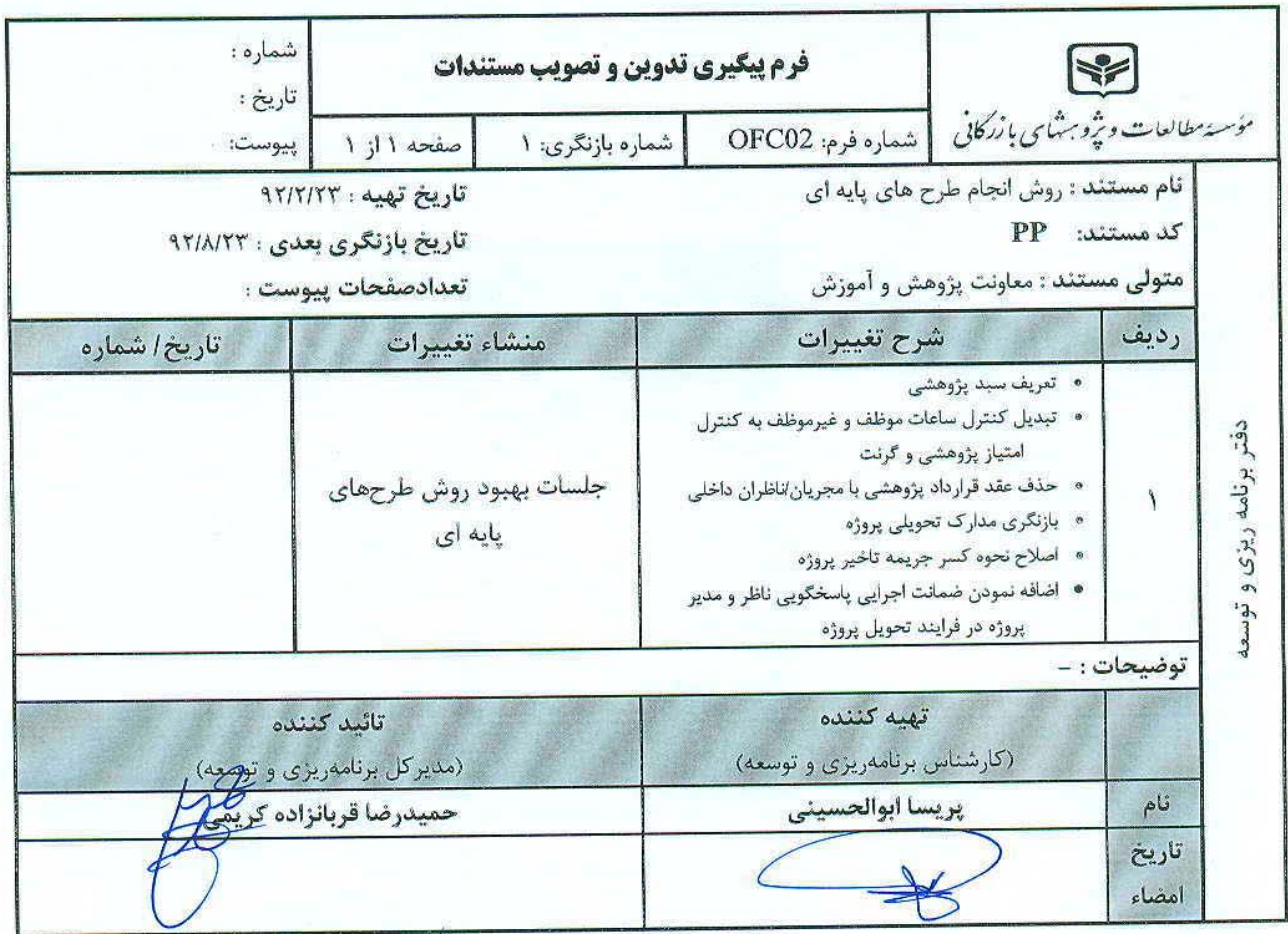 مؤسسه مطالعات و پژوهشهای بازرگانی
فرم پیگیری تدوین و تصویب مستندات
شماره فرم: OFC02
شماره بازنگری: ۱
صفحه ۱ از ۱
شماره :
تاریخ :
پیوست:
نام مستند : روش انجام طرح های پایه ای
تاریخ تهیه : ۹۲/۲/۲۳
کد مستند: PP
تاریخ بازنگری بعدی : ۹۲/۸/۲۳
متولی مستند : معاونت پژوهش و آموزش
تعدادصفحات پیوست :
ردیف
شرح تغییرات
منشاء تغییرات
تاریخ/ شماره
۱
• تعریف سبد پژوهشی
• تبدیل کنترل ساعات موظف و غیرموظف به کنترل
امتیاز پژوهشی و گرنت
• حذف عقد قرارداد پژوهشی با مجریان/ناظران داخلی
• بازنگری مدارک تحویلی پروژه
• اصلاح نحوه کسر جریمه تاخیر پروژه
• اضافه نمودن ضمانت اجرایی پاسخگویی ناظر و مدیر
پروژه در فرایند تحویل پروژه
جلسات بهبود روش طرح‌های
پایه ای
توضیحات : -
تهیه کننده
(کارشناس برنامه‌ریزی و توسعه)
تائید کننده
(مدیرکل برنامه‌ریزی و توسعه)
نام
پریسا ابوالحسینی
حمیدرضا قربانزاده کریمی
تاریخ
امضاء
دفتر برنامه ریزی و توسعه